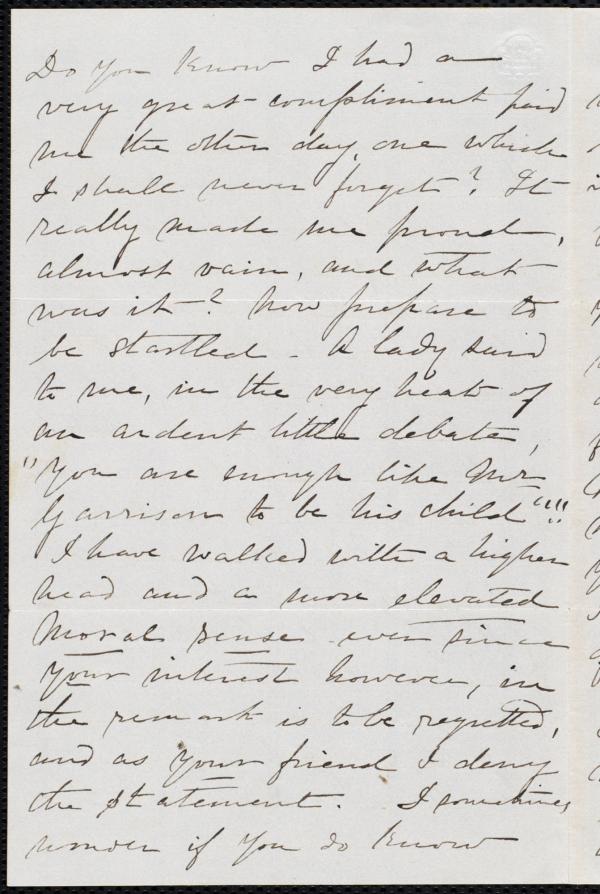 Do you know I had a
very great compliment paid
me the other day, one which
I shall never forget? It
really made me proud,
almost vain, and what
was it? Now prepare to
be startled - A lady said
to me, in the very heat of
an ardent little debate,
"You are enough like Mr
Garrison to be his child"!!!
I have walked with a higher
head and a more elevated
moral sense ever since
Your interest however, in
the remark is to be regretted,
and as your friend I deny
the statement. I sometimes
wonder if you do know